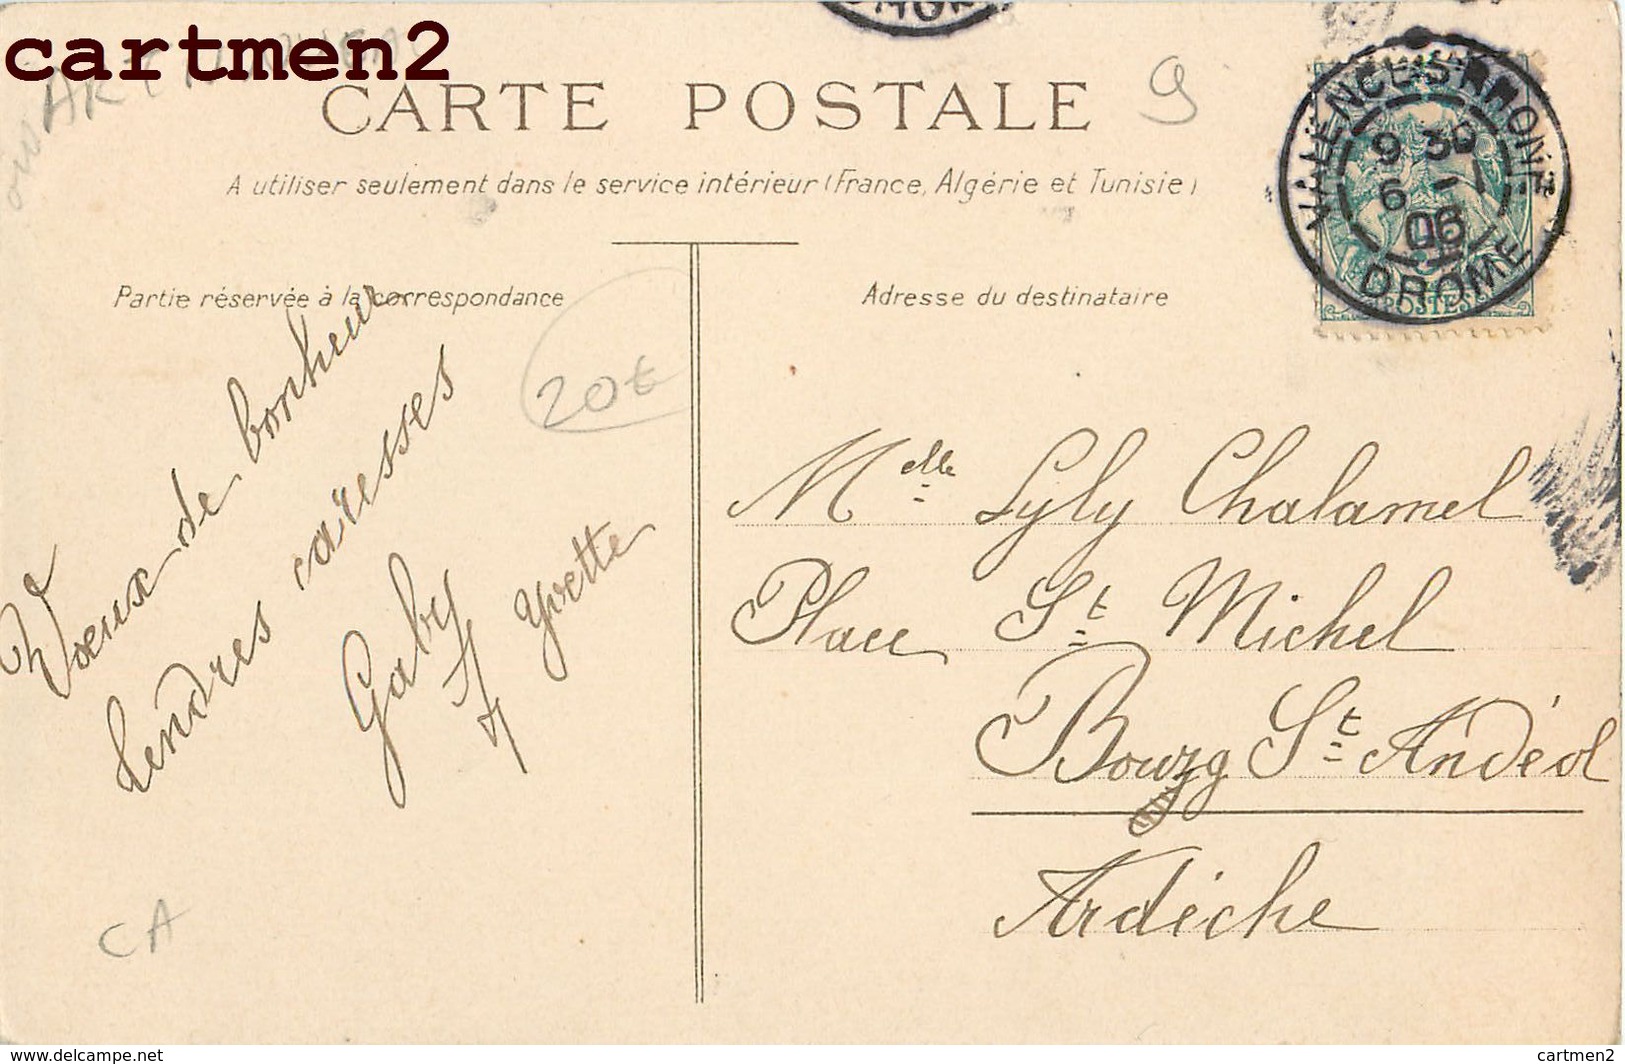 cartmen2
CARTE POSTALE
9
A utiliser seulement dans le service intérieur (France, Algérie et Tunisie)
VALENCE-S-RHONE
9 30
6 -1
06
DROME
POSTES
Partie réservée à la correspondance
Adresse du destinataire
20€
Voeux de bonheur
tendres caresses
Gaby
Yvette
CA
Melle Lyly Chalamel
Place St Michel
Bourg St Andéol
Ardèche
www.delcampe.net
cartmen2